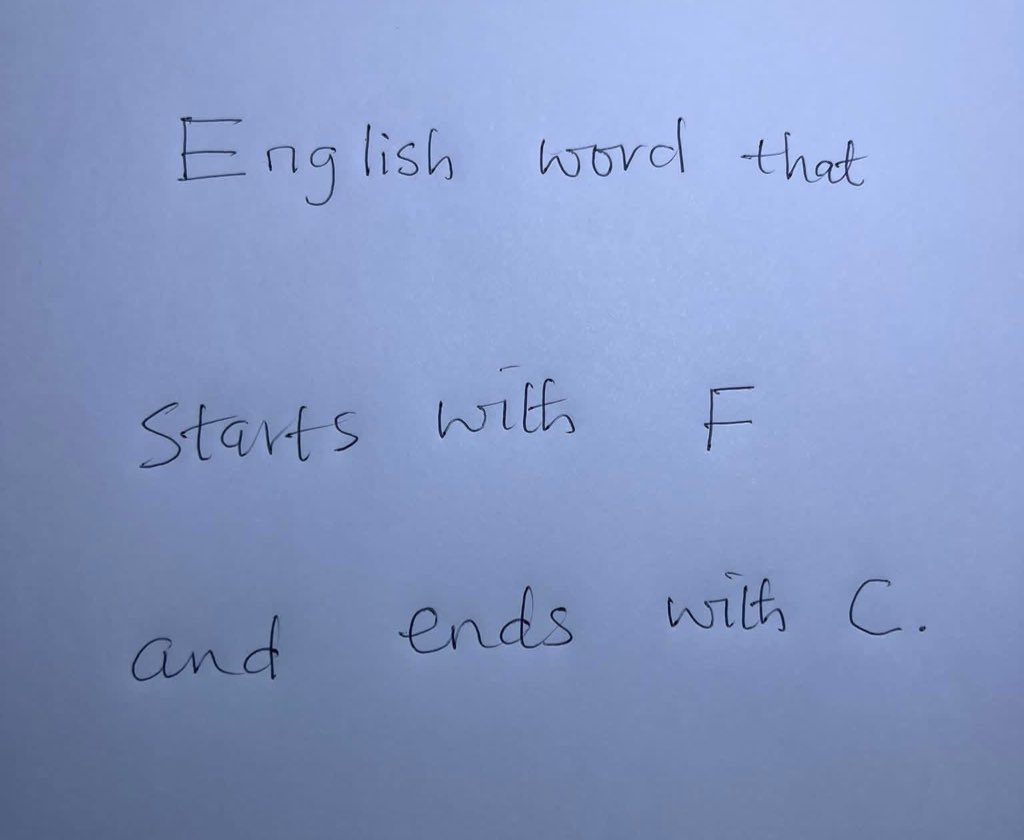 English word that
Starts with F
and ends with C.